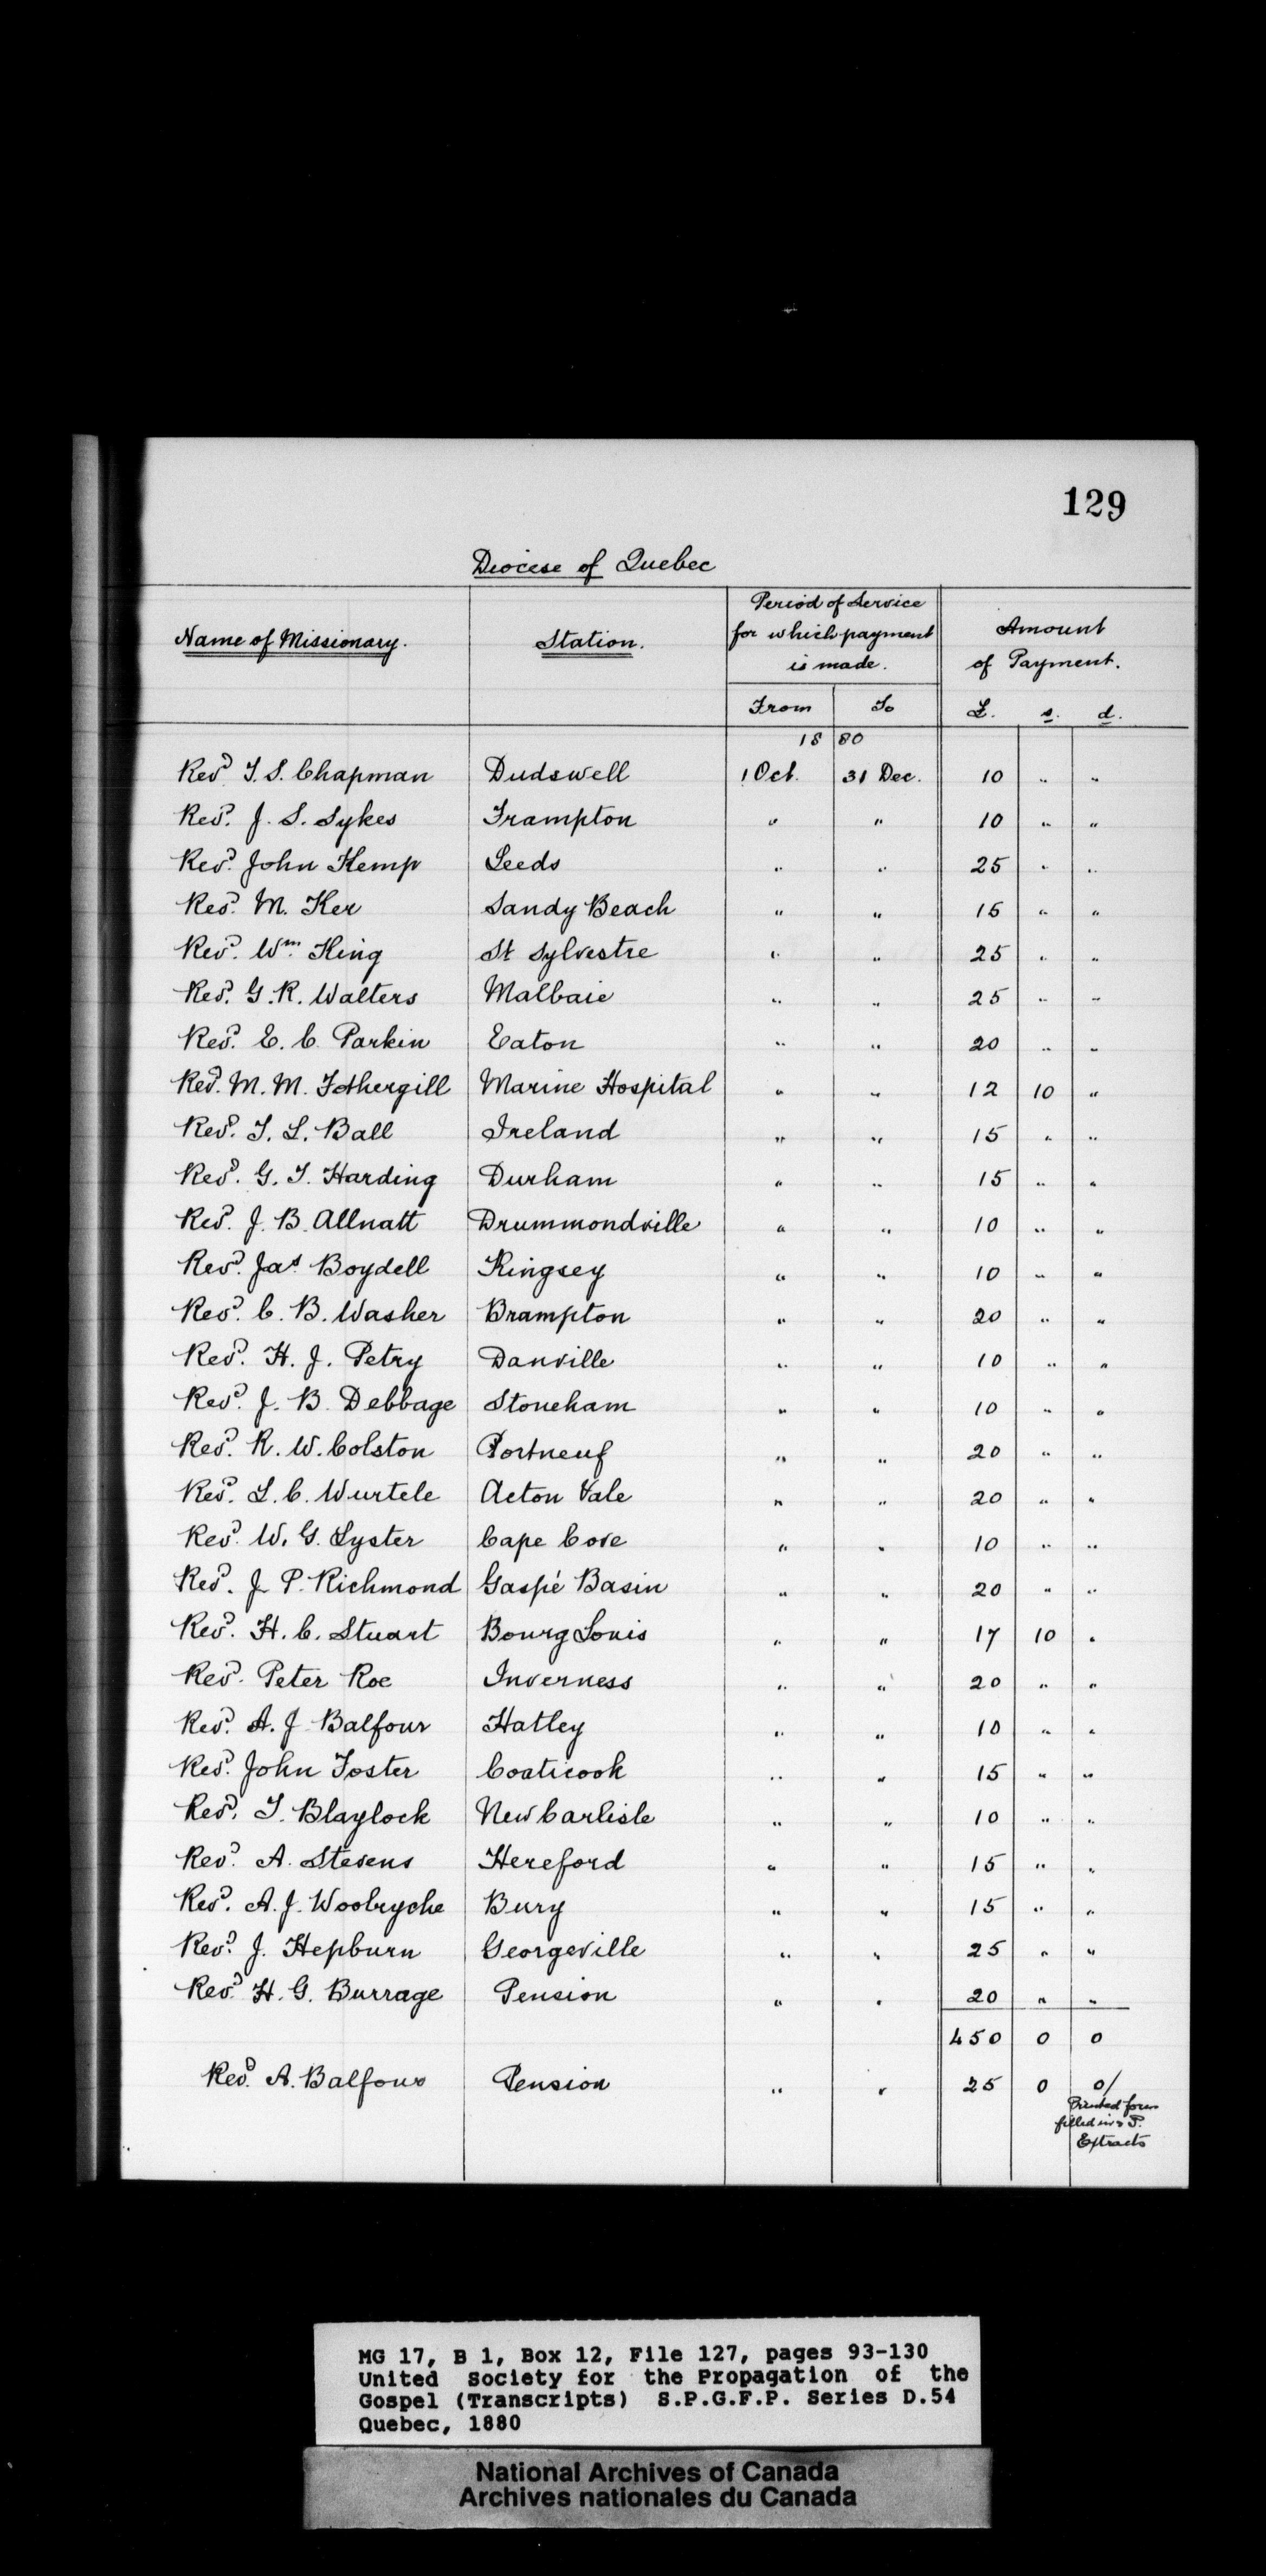 129
Diocese of Quebec
Name of Missionary. Station. Period of Service for which payment is made. Amount of Payment.
From To £. s. d.
18 80
Revd T. S. Chapman Dudswell 1 Oct. 31 Dec. 10 " "
Revd. J. S. Sykes Frampton " " 10 " "
Revd. John Kemp Leeds " " 25 " "
Revd. M. Ker Sandy Beach " " 15 " "
Revd. Wm. King St Sylvestre " " 25 " "
Revd. G. R. Walters Malbaie " " 25 " "
Revd. E. C. Parkin Eaton " " 20 " "
Revd. M. M. Fothergill Marine Hospital " " 12 10 "
Revd. T. L. Ball Ireland " " 15 " "
Revd. G. T. Harding Durham " " 15 " "
Revd. J. B. Allnatt Drummondville " " 10 " "
Revd. Jas. Boydell Kingsey " " 10 " "
Revd. C. B. Washer Brampton " " 20 " "
Revd. H. J. Petry Danville " " 10 " "
Revd. J. B. Debbage Stoneham " " 10 " "
Revd. R. W. Colston Portneuf " " 20 " "
Revd. L. C. Wurtele Acton Vale " " 20 " "
Revd. W. G. Lyster Cape Cove " " 10 " "
Revd. J. P. Richmond Gaspé Basin " " 20 " "
Revd. H. C. Stuart Bourg Louis " " 17 10 "
Revd. Peter Roe Inverness " " 20 " "
Revd. A. J. Balfour Hatley " " 10 " "
Revd. John Foster Coaticook " " 15 " "
Revd. T. Blaylock New Carlisle " " 10 " "
Revd. A. Stevens Hereford " " 15 " "
Revd. A. J. Woolryche Bury " " 15 " "
Revd. J. Hepburn Georgeville " " 25 " "
Revd. H. G. Burrage Pension " " 20 " "
450 0 0
Revd. A. Balfour Pension " " 25 0 0/
Printed form
filled in
Extracts
MG 17, B 1, Box 12, File 127, pages 93-130
United Society for the Propagation of the
Gospel (Transcripts) S.P.G.F.P. Series D.54
Quebec, 1880
National Archives of Canada
Archives nationales du Canada